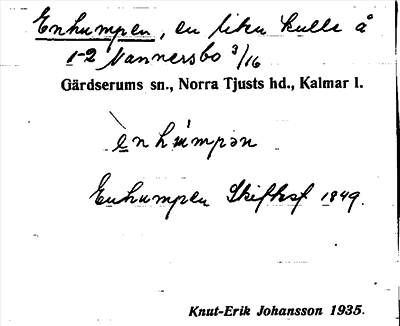 Enhumpen, en liten kulle å
1-2 Vannersbo 3/16
Gärdserums sn., Norra Tjusts hd., Kalmar l.
ènhùmpən
Enhumpen Skifksf 1849.
Knut-Erik Johansson 1935.